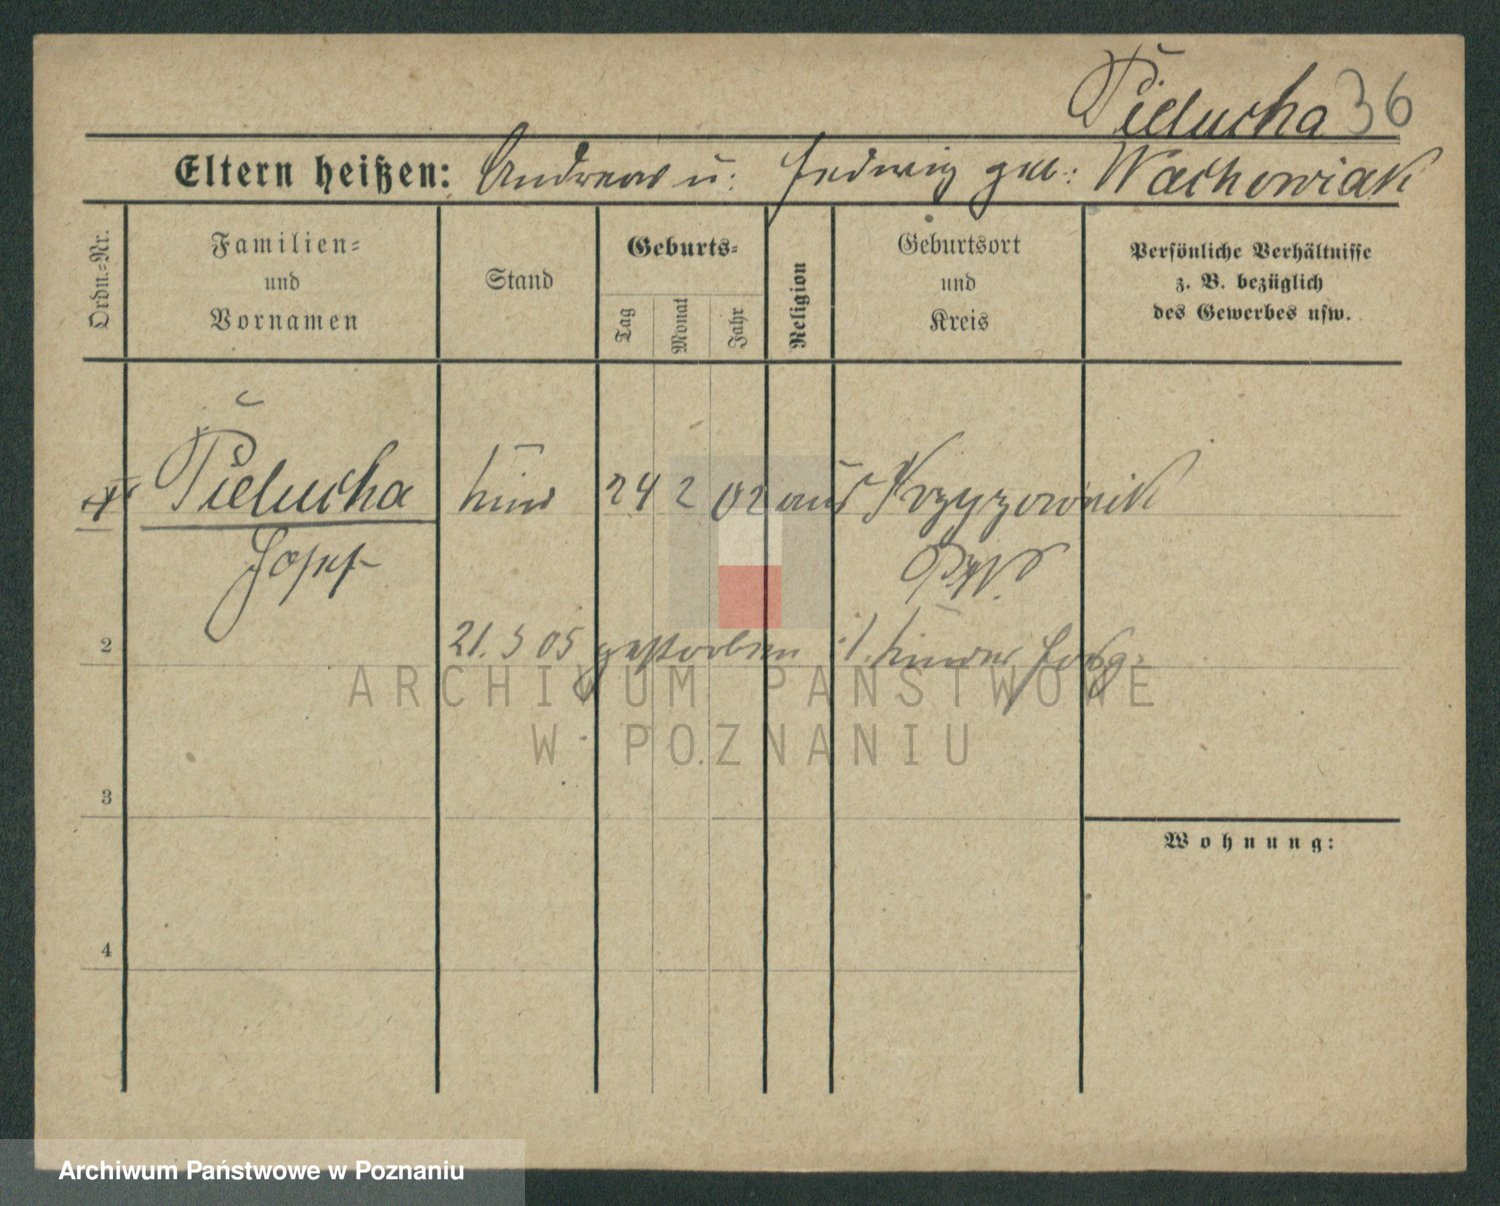 Pielucha 36
Eltern heißen: Andreas u. Hedwig geb. Wachowiak
Ordn.-Nr.
Familien-
und
Vornamen
Stand
Geburts-
Tag
Monat
Jahr
Religion
Geburtsort
und
Kreis
Persönliche Verhältnisse
z. B. bezüglich
des Gewerbes usw.
Pielucha Kind 24 2 02 aus Krzyzownik
Josef
2
21. 3 05 gestorben i/
ARCHIWUM PAŃSTWOWE
W POZNANIU
3
Wohnung:
4
Archiwum Państwowe w Poznaniu